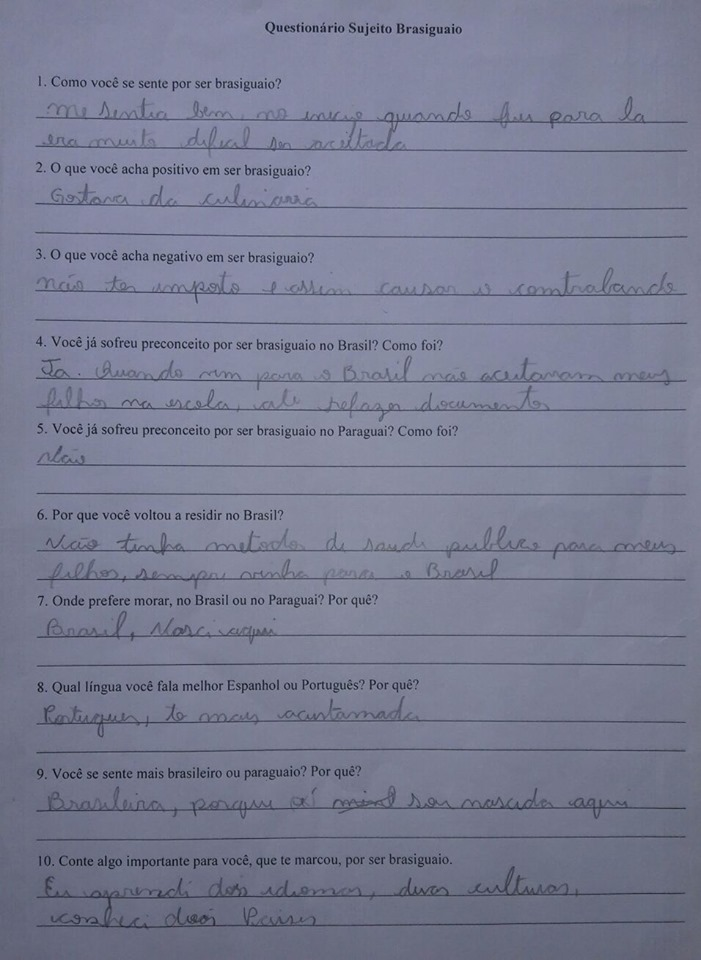 Questionário Sujeito Brasiguaio
1. Como você se sente por ser brasiguaio?
me sentia bem, no inicio quando fui para la
era muito difical ser aceitada
2. O que você acha positivo em ser brasiguaio?
Gostava da culinaria
3. O que você acha negativo em ser brasiguaio?
não ter imposto e assim causar o contrabando
4. Você já sofreu preconceito por ser brasiguaio no Brasil? Como foi?
Ja. Quando vim para o Brasil não aceitavam meus
filhos na escola, ate refazer documentos
5. Você já sofreu preconceito por ser brasiguaio no Paraguai? Como foi?
Não
6. Por que você voltou a residir no Brasil?
Não tinha metodos de saude publico para meus
filhos, sempre vinha para o Brasil
7. Onde prefere morar, no Brasil ou no Paraguai? Por quê?
Brasil, Nasci aqui
8. Qual língua você fala melhor Espanhol ou Português? Por quê?
Portugues, to mais acustamada
9. Você se sente mais brasileiro ou paraguaio? Por quê?
Brasileira, porque sou nascida aqui
10. Conte algo importante para você, que te marcou, por ser brasiguaio.
Eu aprendi dois idiomas, duas culturas,
conheci dois Paises